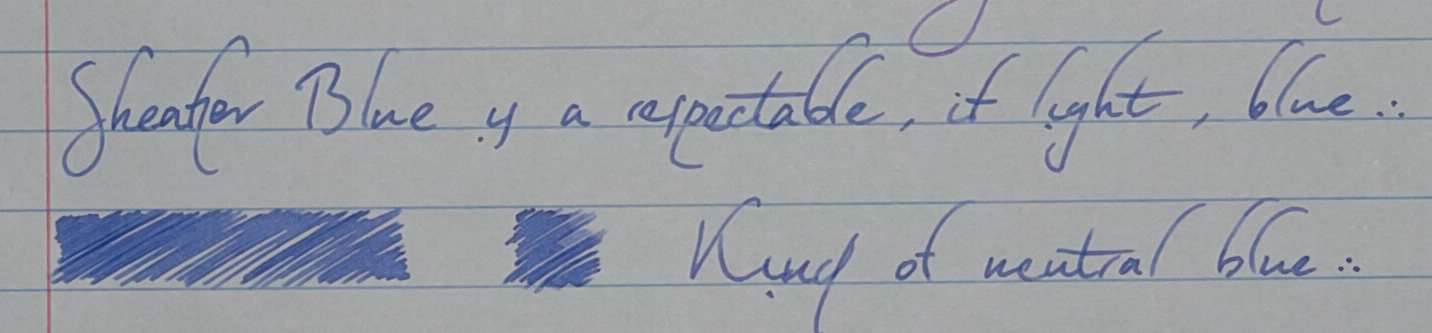 Sheaffer Blue is a respectable, if light, blue ∴
Kind of neutral blue ∴